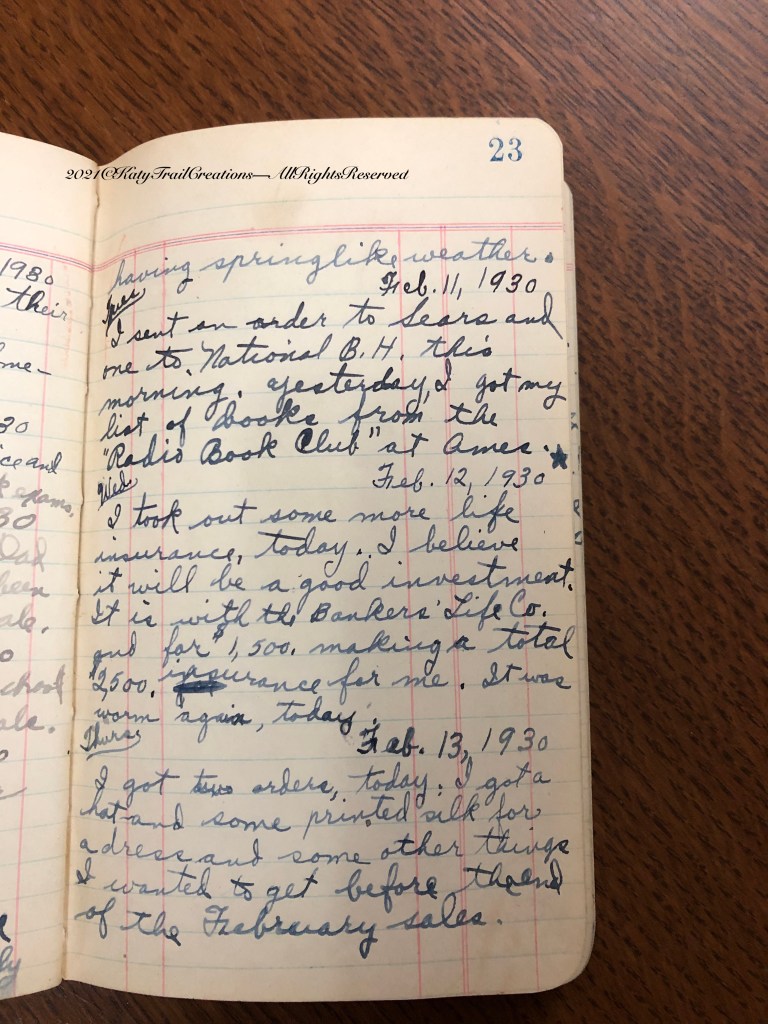 23
2021©KatyTrailCreations—AllRightsReserved
having springlike weather.
Feb. 11, 1930
Tues
I sent an order to Sears and
one to National B.H. this
morning. Yesterday, I got my
list of books from the
"Radio Book Club" at Ames.
Feb. 12, 1930
Wed
I took out some more life
insurance, today. I believe
it will be a good investment.
It is with the Bankers' Life Co.
and for $1,500. making a total
$2,500. insurance for me. It was
warm again, today.
Thurs
Feb. 13, 1930
I got two orders, today. I got a
hat and some printed silk for
a dress and some other things
I wanted to get before the end
of the February sales.
1930
their
me-
30
ice and
exams.
30
Dad
been
ale.
o
chool
als.